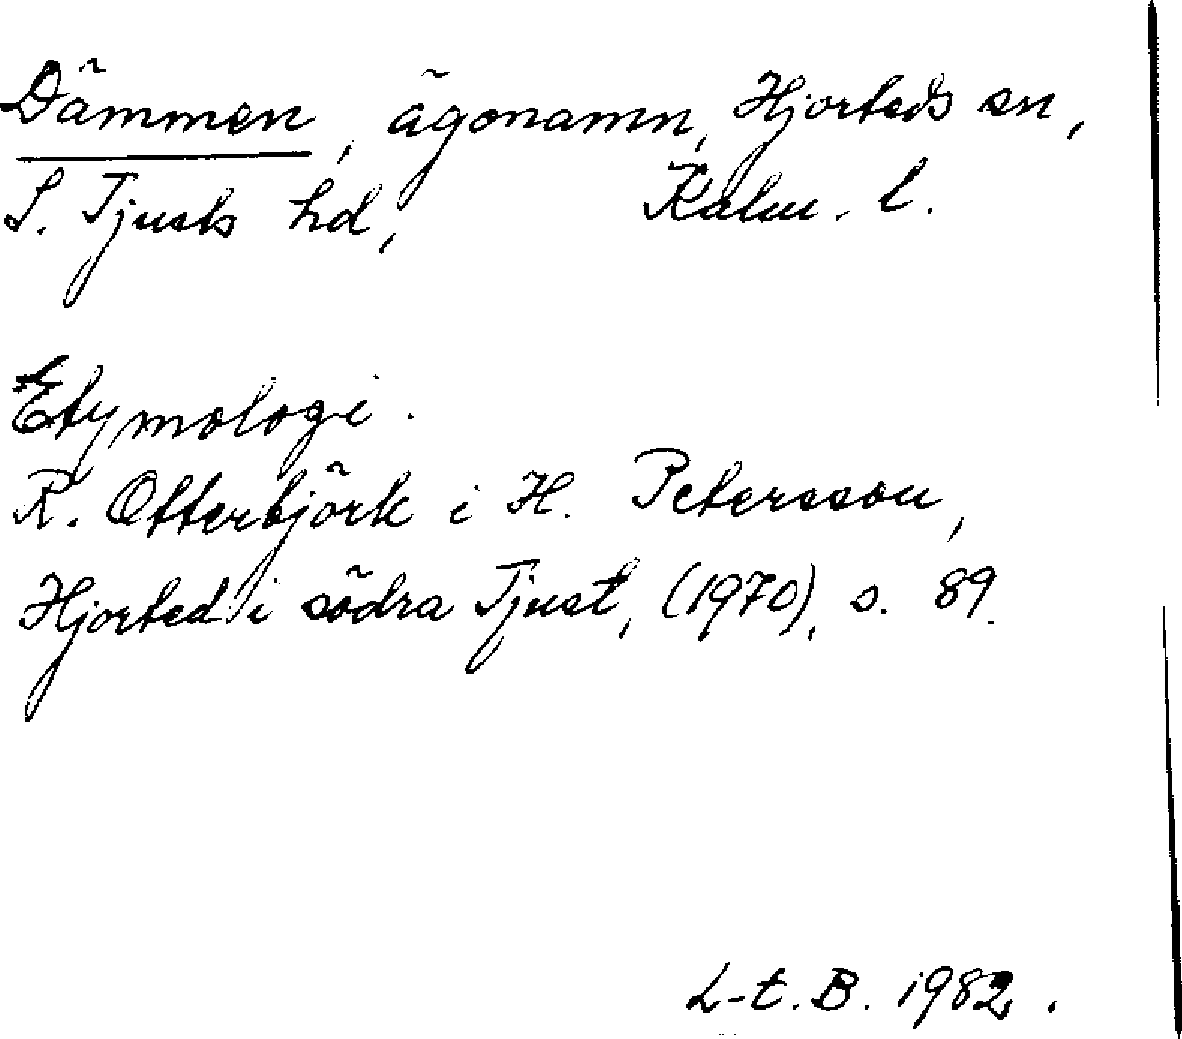 Dämmen, ägonamn, Hjorteds sn,
S. Tjusts hd, Kalm. l.
Etymologi.
R. Otterbjörk i H. Petersson,
Hjorted i södra Tjust, (1970), s. 89.
L-t. B. 1982.